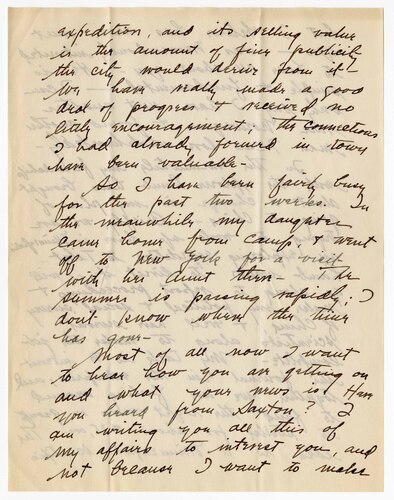 expedition, and its selling value
is the amount of fine publicity
the city would derive from it -
We have really made a good
deal of progress & received no
little encouragement; the connections
I had already formed in town
have been valuable -
So I have been fairly busy
for the past two weeks. In
the meanwhile my daughter
came home from camp, & went
off to New York for a visit
with her aunt there - The
summer is passing rapidly; I
don't know where the time
has gone -
Most of all now I want
to hear how you are getting on
and what your news is. Have
you heard from Saxton? I
am writing you all this of
my affairs to interest you, and
not because I want to make